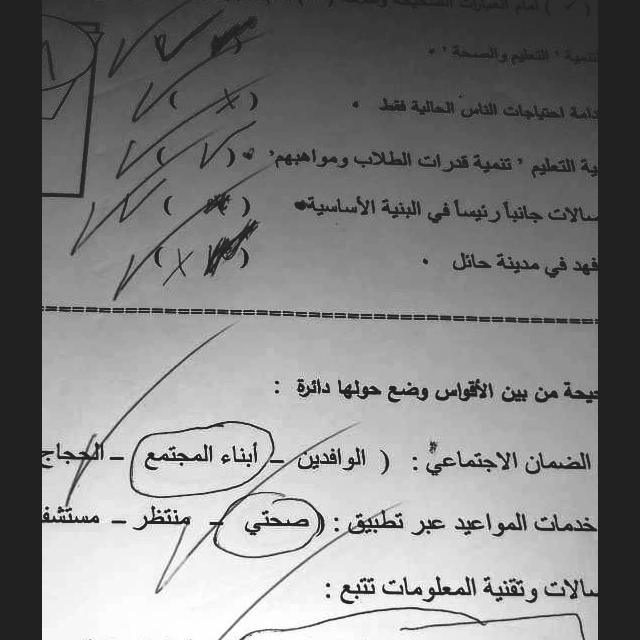 ( ✓ ) أمام العبارات الصحيحة
تنمية ' التعليم والصحة ' . ✓
احتياجات الناس الحالية فقط . ( × )
ية التعليم ' تنمية قدرات الطلاب ومواهبهم' . ( ✓ )
سالات جانباً رئيساً في البنية الأساسية . ( ) ✓
فهد في مدينة حائل . ( × )
حيحة من بين الأقواس وضع حولها دائرة :
الضمان الاجتماعي : ( الوافدين – أبناء المجتمع – الحجاج
خدمات المواعيد عبر تطبيق : ( صحتي – منتظر – مستشف
سالات وتقنية المعلومات تتبع :